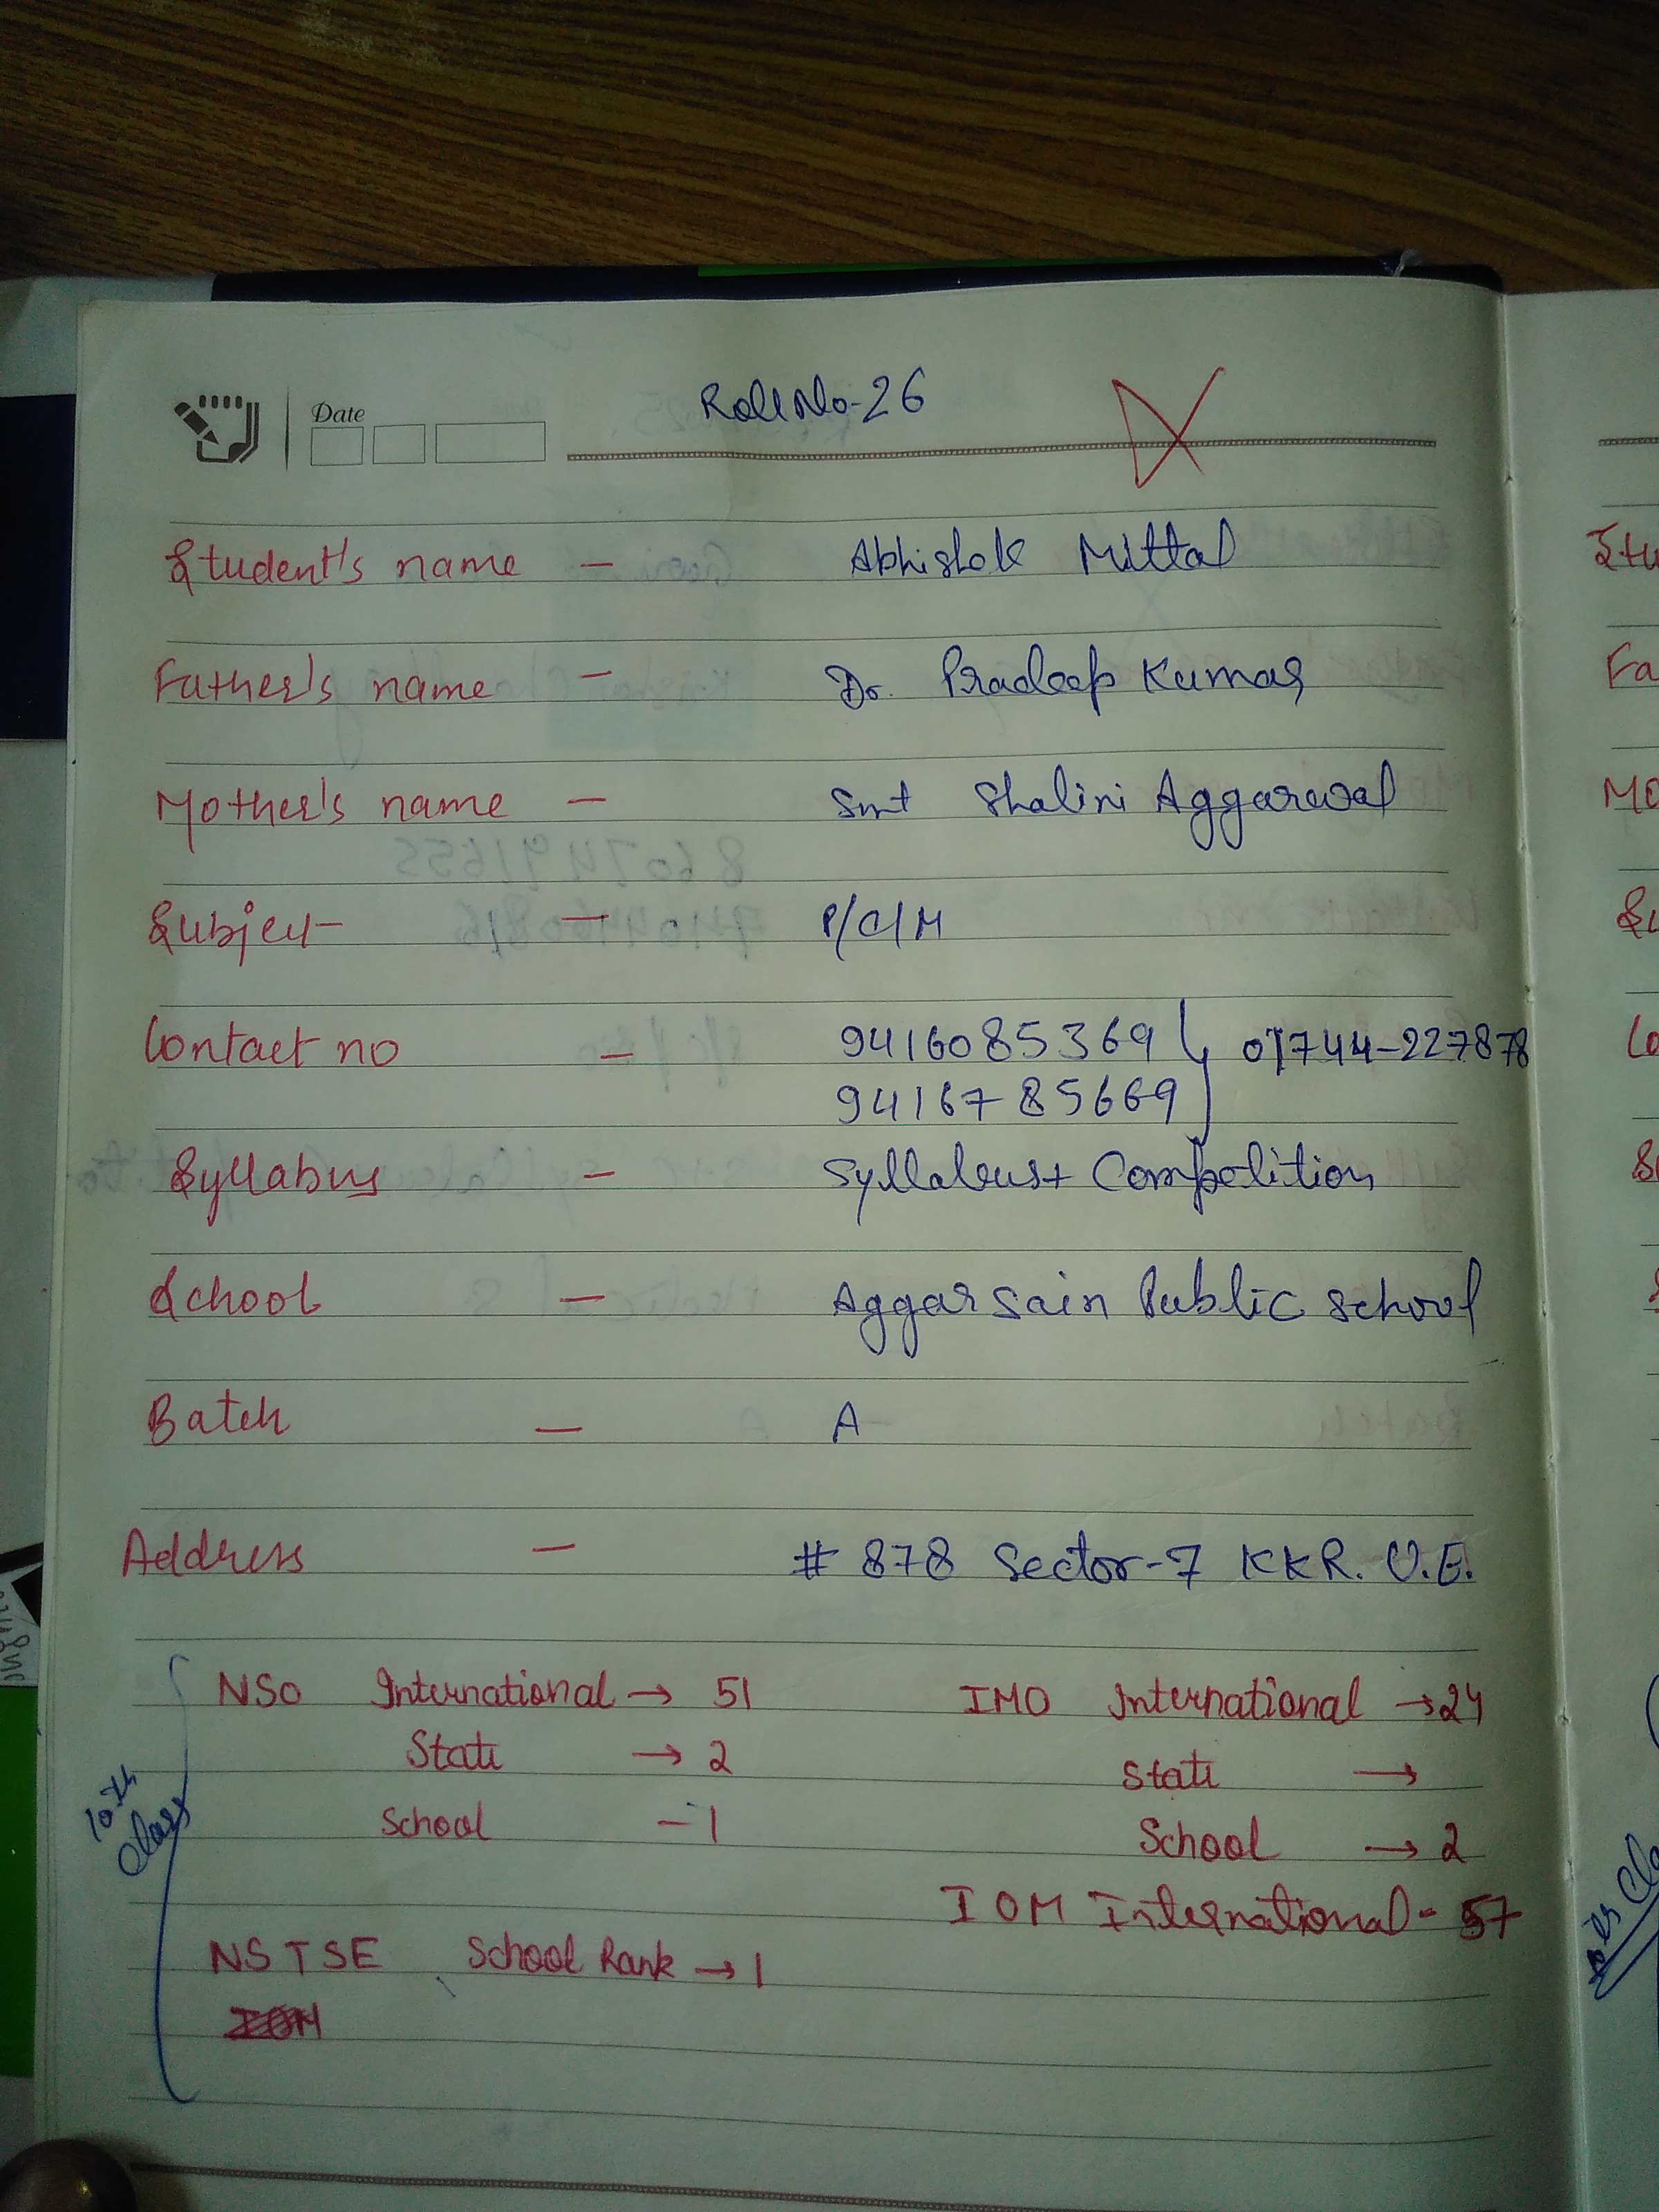 Date
Roll No-26
Student's name - Abhishek Mittal
Father's name - Dr. Pradeep Kumar
Mother's name - Smt Shalini Aggarwal
Subject - P/C/M
Contact no - 9416085369 01744-227878
9416785669
Syllabus - Syllabus+ Competition
School - Aggarsain Public School
Batch - A
Address - # 878 Sector-7 KKR. U.E.
NSO International → 51 IMO International → 24
State → 2 State →
School - 1 School → 2
10th class
IOM International - 57
NSTSE School Rank → 1
IOM